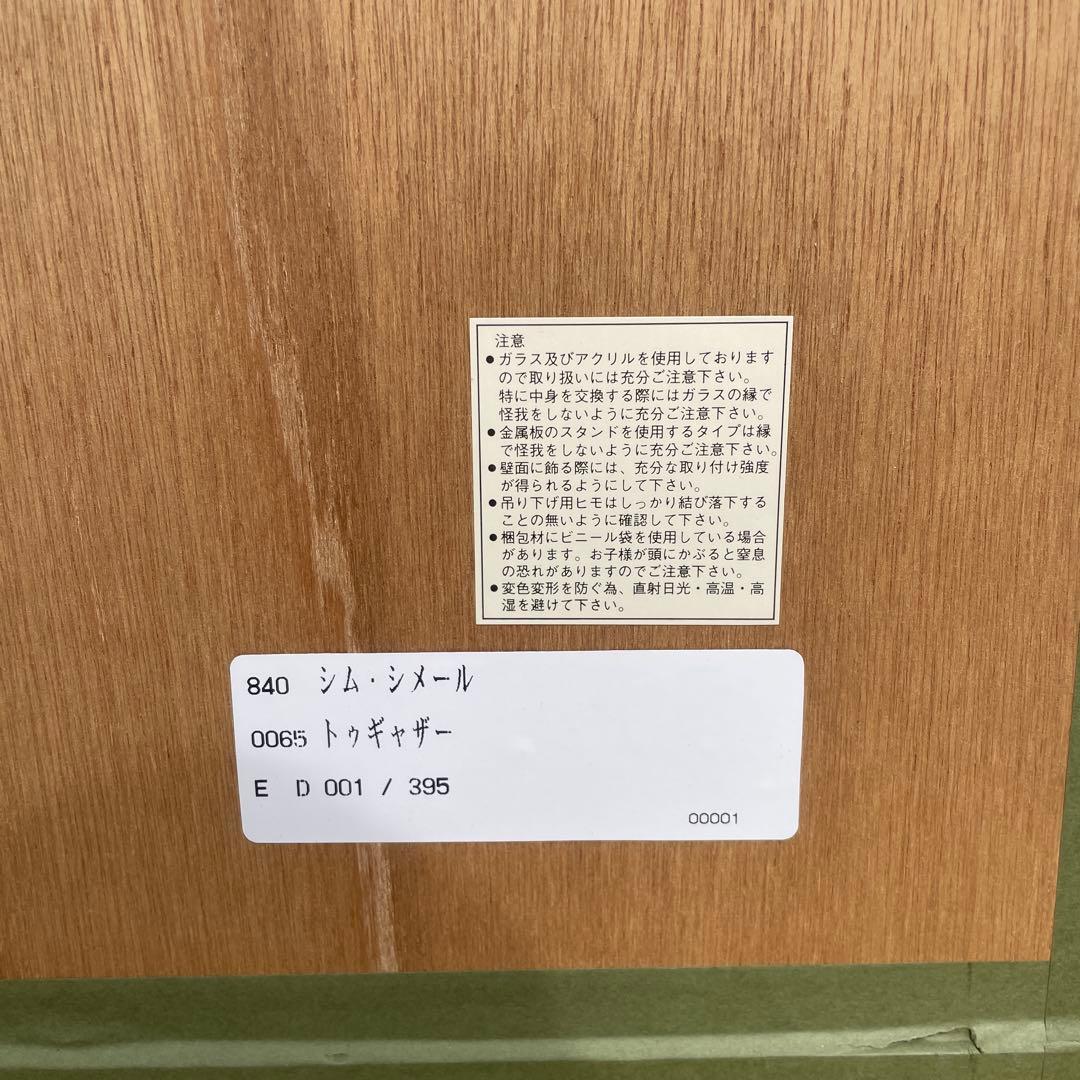 注意
●ガラス及びアクリルを使用しております
ので取り扱いには充分ご注意下さい。
特に中身を交換する際にはガラスの縁で
怪我をしないように充分ご注意下さい。
●金属板のスタンドを使用するタイプは縁
で怪我をしないように充分ご注意下さい。
●壁面に飾る際には、充分な取り付け強度
が得られるようにして下さい。
●吊り下げ用ヒモはしっかり結び落下する
ことの無いように確認して下さい。
●梱包材にビニール袋を使用している場合
があります。お子様が頭にかぶると窒息
の恐れがありますのでご注意下さい。
●変色変形を防ぐ為、直射日光・高温・高
湿を避けて下さい。
840 シム・シメール
0065 トゥギャザー
E D 001 / 395
00001